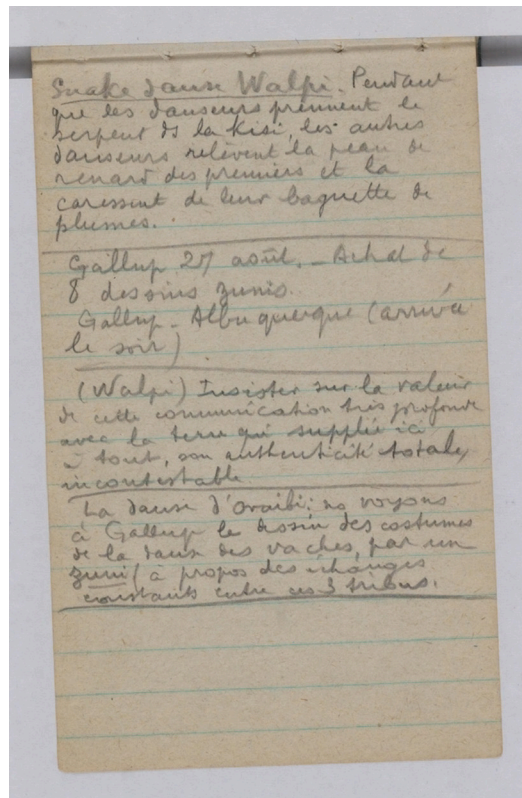 Snake danse Walpi. Pendant
que les danseurs prennent le
serpent ds la Kisi, les autres
danseurs relèvent la peau de
renard des premiers et la
caressent de leur baguette de
plumes.
Gallup 27 août. - Achat de
8 dessins zunis.
Gallup - Albuquerque (arrivée
le soir)
(Walpi) Insister sur la valeur
de cette communication très profonde
avec la terre qui supplée ici
à tout, son authenticité totale,
incontestable
La danse d'Oraibi: ns voyons
à Gallup le dessin des costumes
de la danse des vaches, par un
zuni (à propos des échanges
constants entre ces 3 tribus.